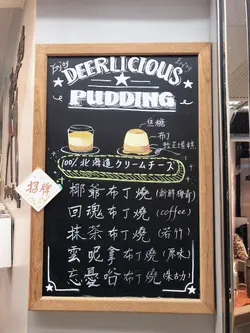 Enjoy Enjoy
DEERLICIOUS
PUDDING
焦糖
布丁
軟芝士蛋糕
100% 北海道クリームチーズ
招牌
椰爺布丁燒 (新鮮椰青)
回魂布丁燒 (coffee)
抹茶布丁燒 (若竹)
雲呢拿布丁燒 (原味)
忘憂谷布丁燒 (朱古力)